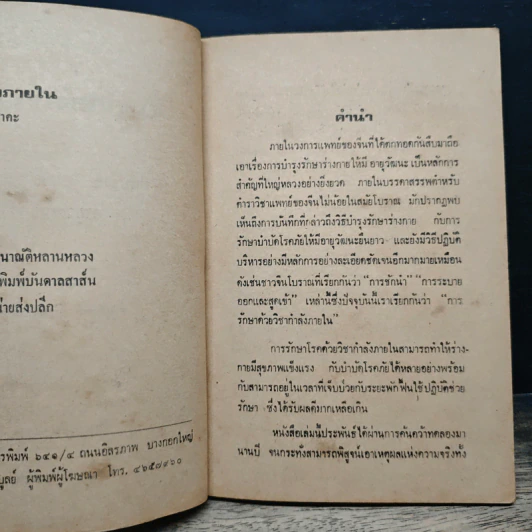 ภายใน
าคะ
นาณัติหลานหลวง
พิมพ์บันดาลสาส์น
น่ายส่งปลีก
รพิมพ์ ๖๔๑/๔ ถนนอิสรภาพ บางกอกใหญ่
บูลย์ ผู้พิมพ์ผู้โฆษณา โทร. ๔๖๕๗๙๖๐
คำนำ
ภายในวงการแพทย์ของจีนที่ได้ตกทอดกันสืบมาถือ
เอาเรื่องการบำรุงรักษาร่างกายให้มี อายุวัฒนะ เป็นหลักการ
สำคัญที่ใหญ่หลวงอย่างยิ่งยวด ภายในบรรดาสรรพตำหรับ
ตำราวิชาแพทย์ของจีนไม่น้อยในสมัยโบราณ มักปรากฏพบ
เห็นถึงการบันทึกที่กล่าวถึงวิธีบำรุงรักษาร่างกาย กับการ
รักษาบำบัดโรคภัยให้มีอายุวัฒนะยืนยาว และยังมีวิธีปฏิบัติ
บริหารอย่างมีหลักการอย่างละเอียดชัดเจนอีกมากมายเหมือน
ดังเช่นชาวจีนโบราณที่เรียกกันว่า “การชักนำ” “การระบาย
ออกและสูดเข้า” เหล่านี้ซึ่งปัจจุบันนี้เราเรียกกันว่า “การ
รักษาด้วยวิชากำลังภายใน”
การรักษาโรคด้วยวิชากำลังภายในสามารถทำให้ร่าง-
กายมีสุขภาพแข็งแรง กับบำบัดโรคภัยได้หลายอย่างพร้อม
กับสามารถอยู่ในเวลาที่เจ็บป่วยกับระยะพักฟื้นใช้ปฏิบัติช่วย
รักษา ซึ่งได้รับผลดีมากเหลือเกิน
หนังสือเล่มนี้ประพันธ์ได้ผ่านการค้นคว้าทดลองมา
นานปี จนกระทั่งสามารถพิสูจน์เอาเหตุผลแห่งความจริงทั้ง